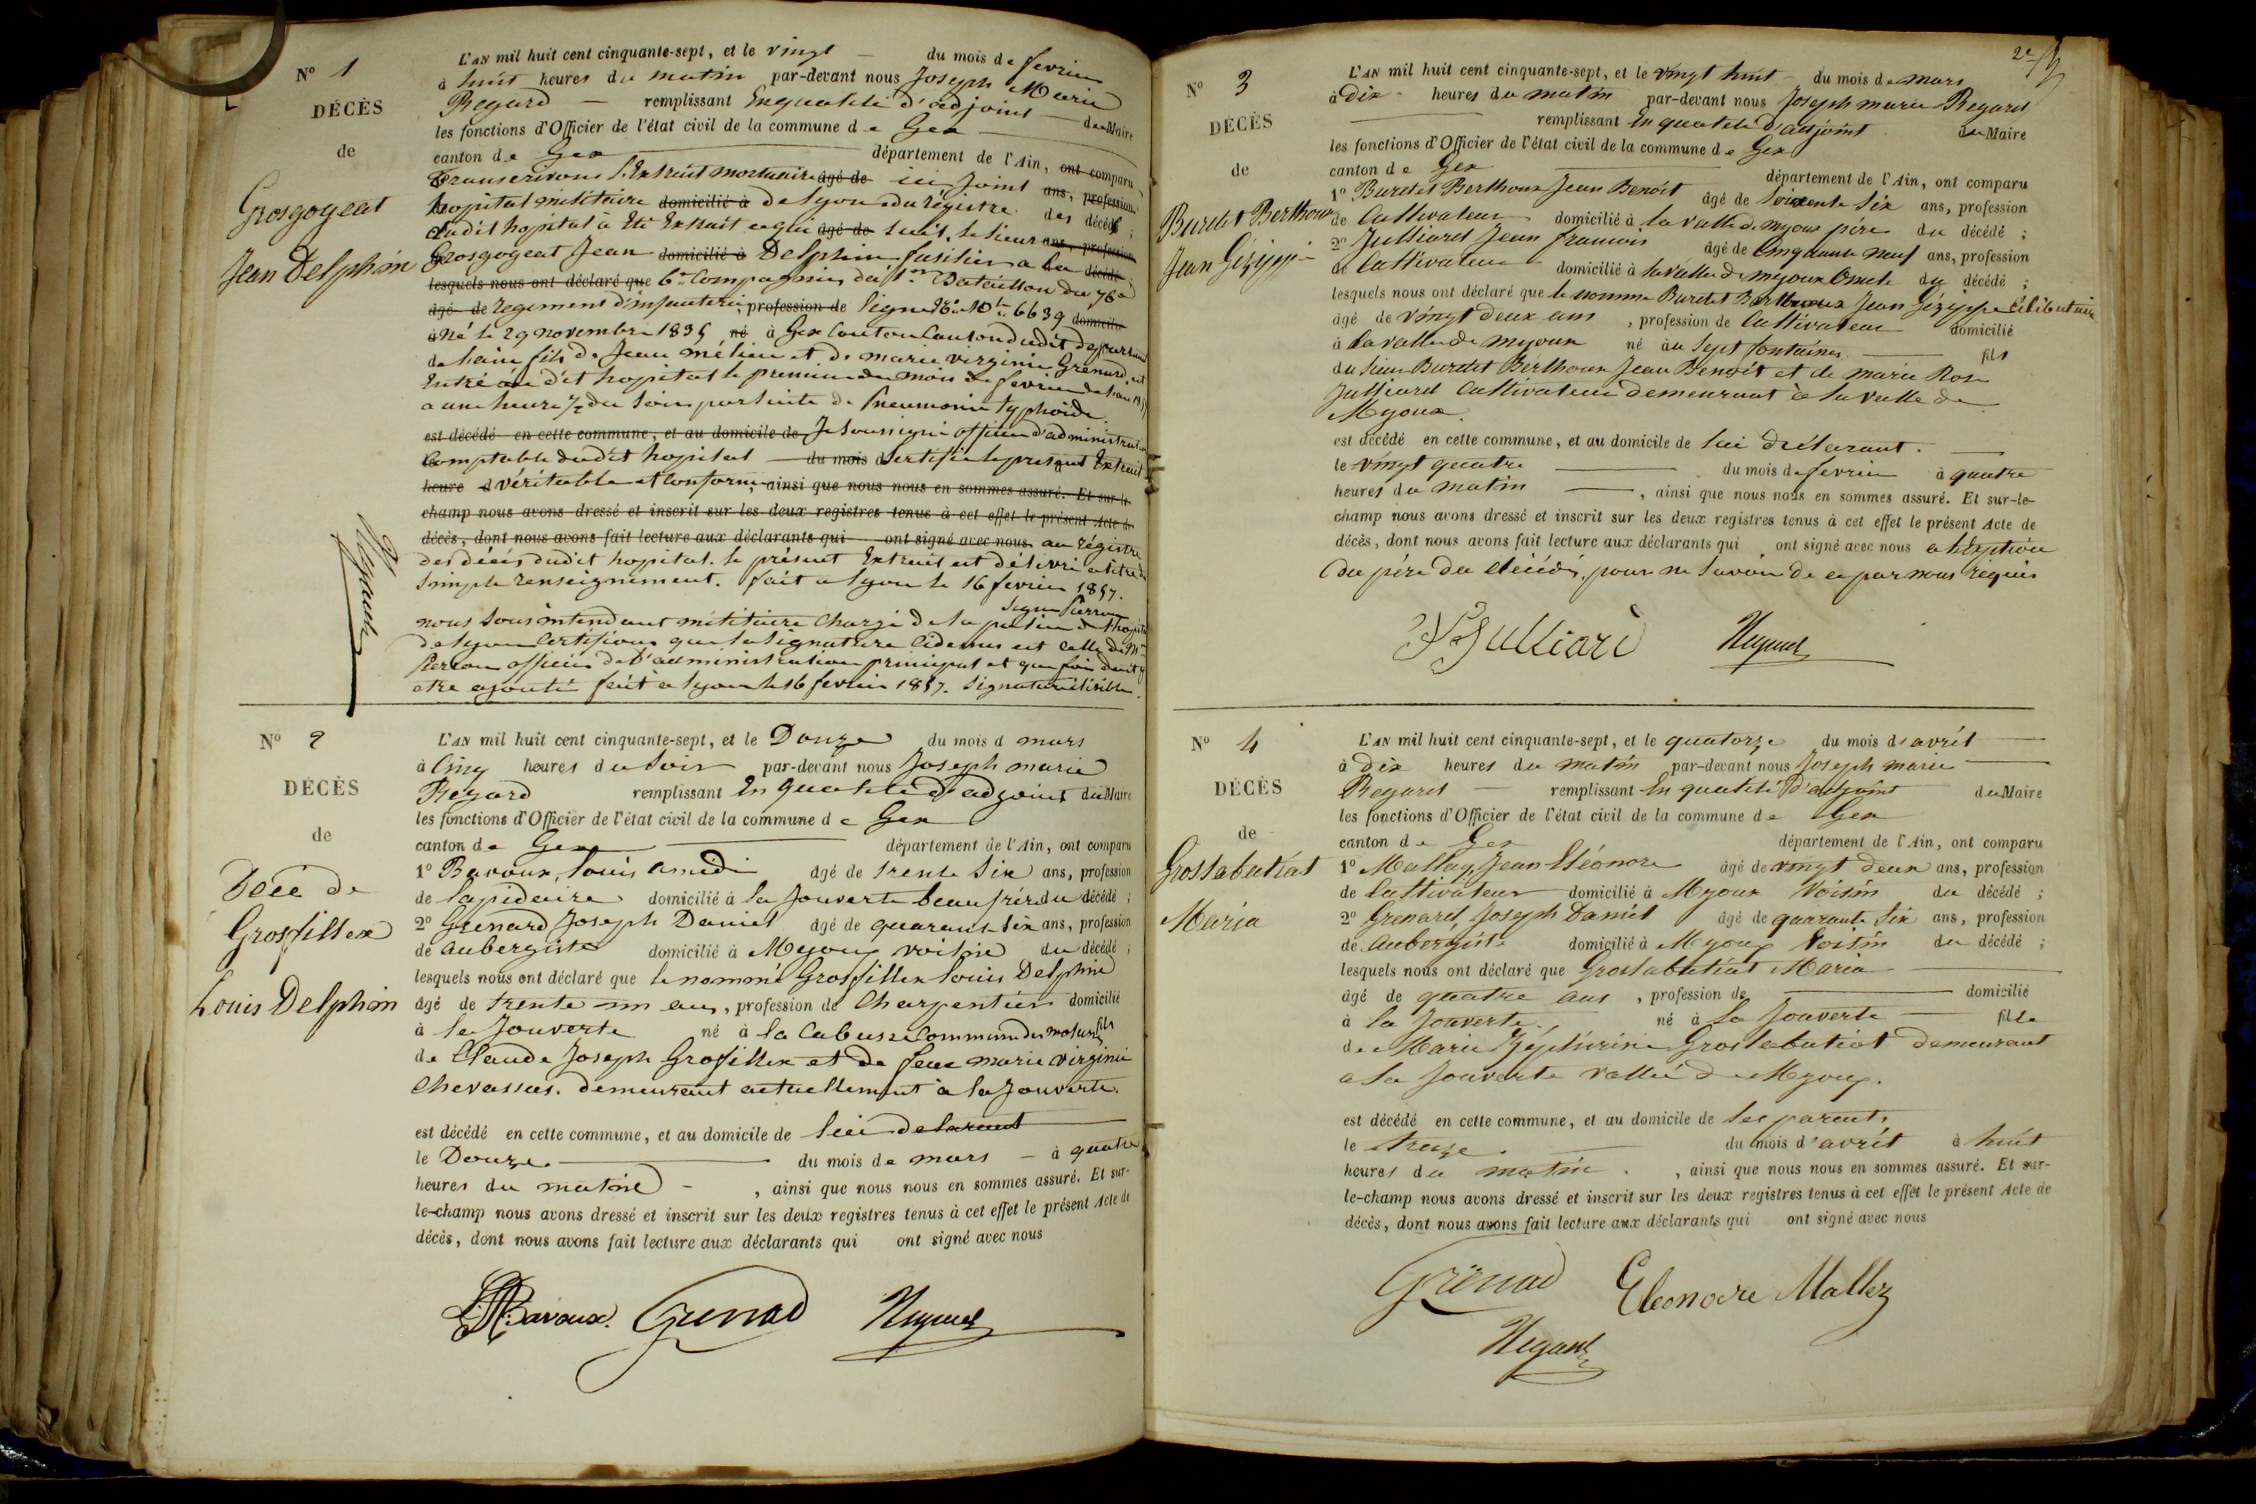 N° 1
DÉCÈS
de
Grosgogeat
Jean Delphin
L'AN mil huit cent cinquante-sept, et le vingt du mois de fevrier
à huit heures du matin par-devant nous Joseph Marie
Regard remplissant En qualité d'adjoint du Maire
les fonctions d'Officier de l'état civil de la commune de Gex
canton de Gex département de l'Ain, ont comparu
Transcrivons l'Extrait mortuaire âgé de ici joint ans, profession
hopital militaire domicilié à de Lyon du régistre des décés
dudit hopital à été Extrait ce qui âgé de suit. le sieur ans, profession
Grosgogeat Jean domicilié à Delphin fusilier a la décédé
lesquels nous ont déclaré que 6e Compagnie du 1er Bataillon du 76e
âgé de regiment d'infanterie profession de ligne 6639 domicilié
à né le 29 novembre 1835 né à Gex Canton Canton dudit
de Lain fils de Jean mélieu et de marie virginie Grenard, est
Entré au dit hopital le premier du mois de fevrier
a une heure ½ du soir par suite de Pneumonie typhoïde
est décédé en cette commune, et au domicile de Je soussigné officier d'administration
Comptable dudit hopital du mois d Certifie le présent Extrait
heure d véritable et Conforme, ainsi que nous nous en sommes assuré. Et sur-le-
champ nous avons dressé et inscrit sur les deux registres tenus à cet effet le présent Acte de
décès, dont nous avons fait lecture aux déclarants qui ont signé avec nous au régistre
des décés dudit hopital. le présent Extrait est délivré a titre de
simple renseignement. fait a Lyon le 16 fevrier 1857.
signé Pierron
nous sous intendant militaire Chargé de la police de l'hopital
de Lyon Certifions que la signature Cidessus est Celle de Mr
Pierron officier de l'administration principal et que foi doit y
etre ajouté fait a Lyon le 16 fevrier 1857. signature illisible.
Regard
N° 2
DÉCÈS
de
Décé de
Grosfillex
Louis Delphin
L'AN mil huit cent cinquante-sept, et le Douze du mois d mars
à Cinq heures du soir par-devant nous Joseph marie
Regard remplissant En qualité d'adjoint du Maire
les fonctions d'Officier de l'état civil de la commune de Gex
canton de Gex département de l'Ain, ont comparu
1° Bavoux, Louis amédé âgé de trente six ans, profession
de lapidaire domicilié à la Jouverte beaufrére du décédé ;
2° Grenard Joseph Daniel âgé de quarante six ans, profession
de aubergiste domicilié à Myoux voisin du décédé ;
lesquels nous ont déclaré que le nommé Grosfillex Louis Delphin
âgé de trente un ans, profession de Charpentier domicilié
à la Jouverte né à la Cabusse Commune des molunes fils
de Claude Joseph Grosfillex et de feue marie virginie
Chevassus. demeurant actuellement à la Jouverte.
est décédé en cette commune, et au domicile de lui délarant
le Douze du mois de mars à quatre
heures du matin , ainsi que nous nous en sommes assuré. Et sur-
le-champ nous avons dressé et inscrit sur les deux registres tenus à cet effet le présent Acte de
décès, dont nous avons fait lecture aux déclarants qui ont signé avec nous
Bavoux. Grenad Regard
2e
N° 3
DÉCÈS
de
Burdet Berthoux
Jean Gézippe
L'AN mil huit cent cinquante-sept, et le vingt huit du mois de mars
à dix heures du matin par-devant nous Joseph marie Regard
remplissant En qualité d'adjoint du Maire
les fonctions d'Officier de l'état civil de la commune de Gex
canton de Gex département de l'Ain, ont comparu
1° Burdet Berthoux Jean Benoit âgé de soixente six ans, profession
de Cultivateur domicilié à la vallé de myoux père du décédé ;
2° Julliard Jean francois âgé de Cinquante neuf ans, profession
de Cultivateur domicilié à la vallé de myoux Oncle du décédé ;
lesquels nous ont déclaré que le nommé Burdet Berthoux Jean Gézippe célibataire
âgé de vingt deux ans , profession de Cultivateur domicilié
à la valle de myoux né au Sept fontaines fils
du sieur Burdet Berthoux Jean Benoit et de marie Rose
Julliard Cultivateur demeurant à la valle de
Myoux.
est décédé en cette commune, et au domicile de lui déclarant.
le vingt quatre du mois de fevrier à quatre
heures du matin , ainsi que nous nous en sommes assuré. Et sur-le-
champ nous avons dressé et inscrit sur les deux registres tenus à cet effet le présent Acte de
décès, dont nous avons fait lecture aux déclarants qui ont signé avec nous a
du père du décédé, pour ne savoir de ce par nous réquis
Julliard Regard
N° 4
DÉCÈS
de
Grostabutiat
Maria
L'AN mil huit cent cinquante-sept, et le quatorze du mois d'avril
à Dix heures du matin par-devant nous Joseph marie
Regard remplissant En qualité d'adjoint du Maire
les fonctions d'Officier de l'état civil de la commune de Gex
canton de Gex département de l'Ain, ont comparu
1° Mallay Jean Eléonore âgé de vingt deux ans, profession
de Cultivateur domicilié à Myoux Voisin du décédé ;
2° Grenard, Joseph Daniel âgé de quarante six ans, profession
de Aubergiste domicilié à Myoux Voisin du décédé ;
lesquels nous ont déclaré que Grostabutiat Maria
âgé de quatre ans , profession de domicilié
à la Jouverte. né à la Jouverte fille
de Marie Zéphirine Grostabutiat demeurant
a la Jouverte vallée de Myoux.
est décédé en cette commune, et au domicile de ses parents
le treize du mois d'avril à huit
heures du matin , ainsi que nous nous en sommes assuré. Et sur-
le-champ nous avons dressé et inscrit sur les deux registres tenus à cet effet le présent Acte de
décès, dont nous avons fait lecture aux déclarants qui ont signé avec nous
Grenad Eleonore Mallez
Regard